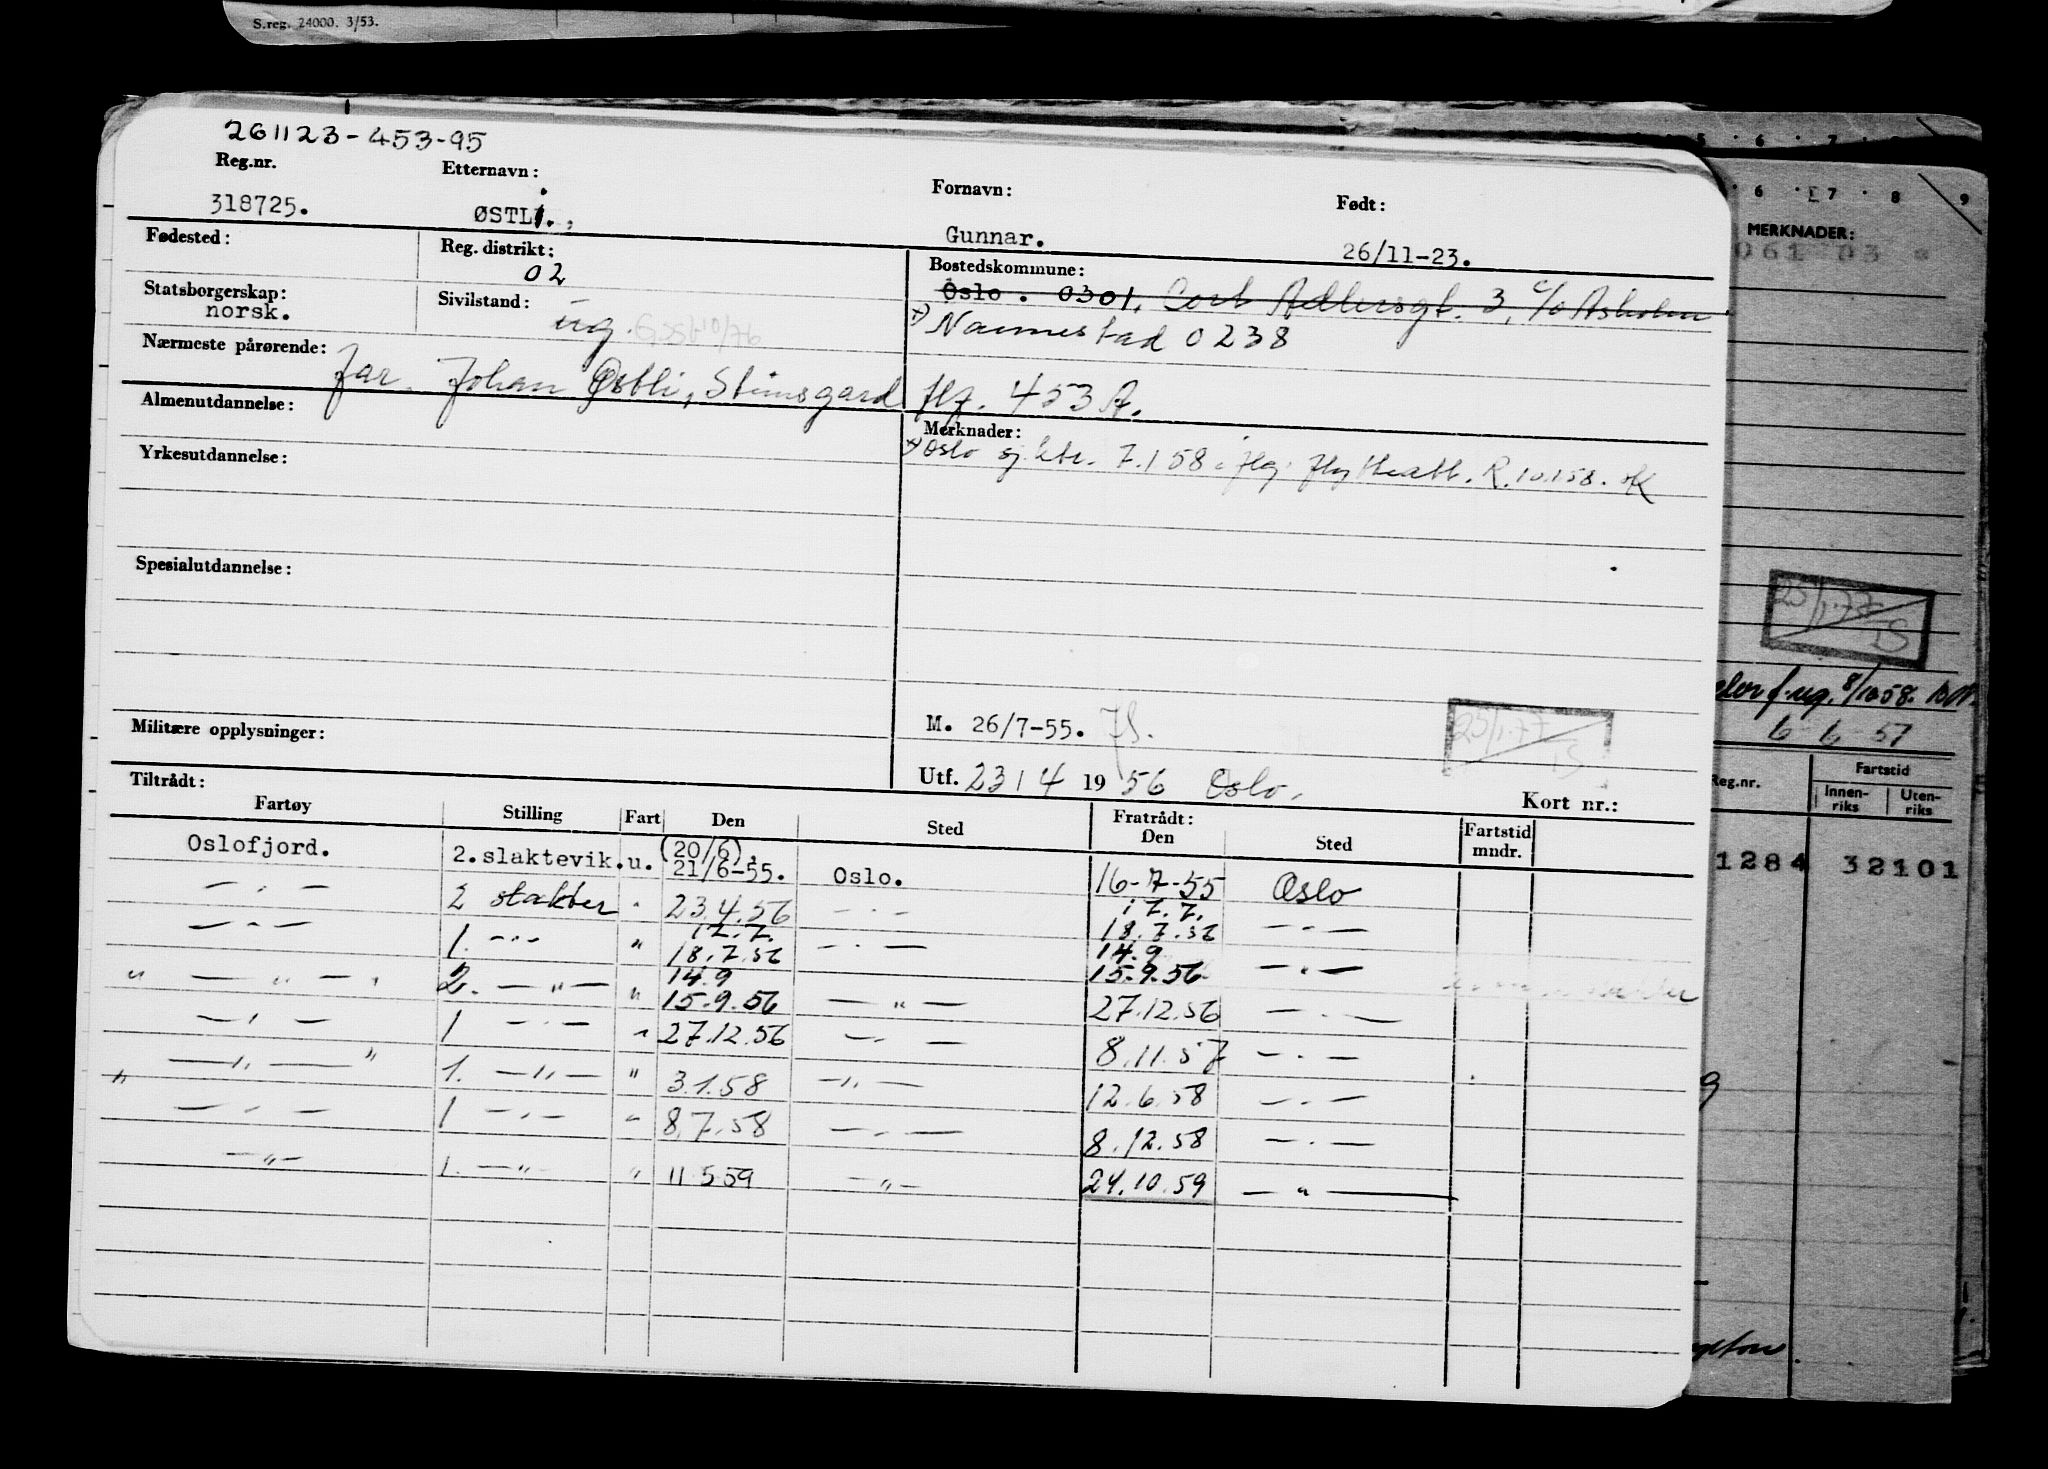 S.reg. 24000. 3/53.
261123-453-95
Reg.nr. Etternavn: Fornavn: Født:
318725. ØSTLi., Gunnar. 26/11-23.
Fødested: Reg. distrikt: 02 Bostedskommune:
Oslo. 0301, Cort Adlersgt. 3, c/o Asholm
Statsborgerskap: norsk. Sivilstand: ug.
x) Nannestad 0238
Nærmeste pårørende: far, Johan Østli, Steinsgard
flg. 453 A.
Almenutdannelse: Merknader:
x) Oslo sj.ktr. 7.1 58 R. 10.1 58. OK
Yrkesutdannelse:
Spesialutdannelse:
Militære opplysninger: M. 26/7-55.
25/1-77
Utf. 23/4 1956 Oslo. Kort nr.:
Tiltrådt: Fratrådt:
Fartøy Stilling Fart Den Sted Den Sted Fartstid mndr.
Oslofjord. 2.slaktevik. u. (20/6). 21/6-55. Oslo. 16-7-55 Oslo
— " — 2 slakter " 23.4.56 — " — 17.7. 18.7.56 — " —
— " — 1. — " — " 17.7. 18.7.56 — " — 14.9 15.9.56 — " —
" — " — 2. — " — " 14.9 15.9.56 — " — 27.12.56 — " —
— " — 1 — " — " 27.12.56 — " — 8.11.57 — " —
— " — " 1. — " — " 3.1.58 — " — 12.6.58 — " —
" — " — 1 — " — " 8.7.58 — " — 8.12.58 — " —
— " — 1. — " — " 11.5.59 — " — 24.10.59 — " —
5 6 7
6 7 8 9
MERKNADER:
061 03
25/1-77
8/10 58.
6-6-57
Reg.nr. Fartstid
Innenriks Utenriks
1284 32101